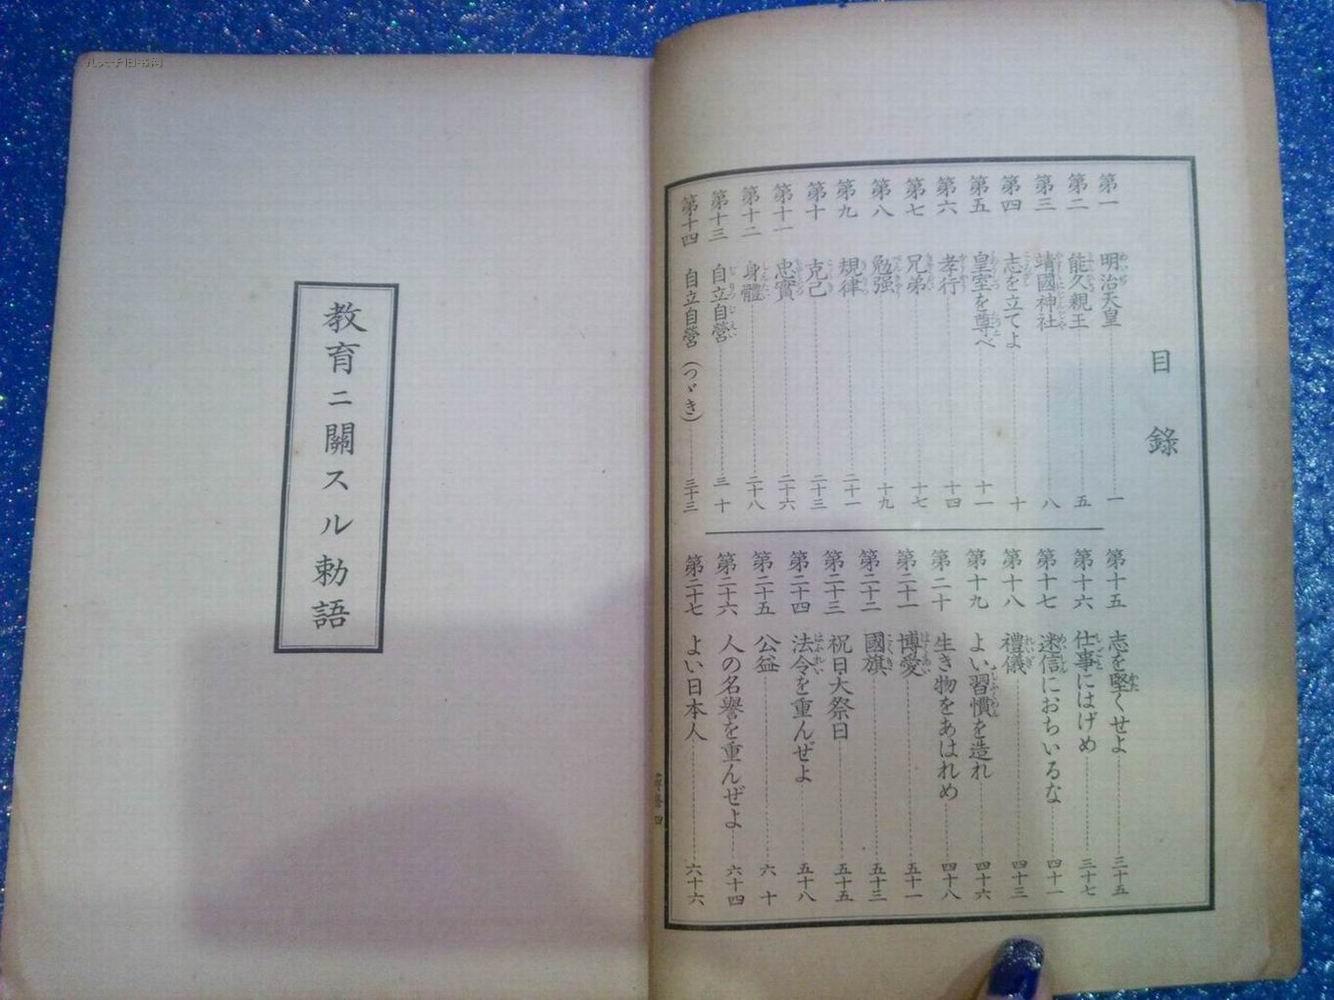 目錄
第一 明治天皇 一
第二 能久親王 五
第三 靖國神社 八
第四 志を立てよ 十
第五 皇室を尊べ 十一
第六 孝行 十四
第七 兄弟 十七
第八 勉强 十九
第九 規律 二十一
第十 克己 二十三
第十一 忠實 二十六
第十二 身體 二十八
第十三 自立自營 三十
第十四 自立自營(つゞき) 三十三
第十五 志を堅くせよ 三十五
第十六 仕事にはげめ 三十七
第十七 迷信におちいるな 四十一
第十八 禮儀 四十三
第十九 よい習慣を造れ 四十六
第二十 生き物をあはれめ 四十八
第二十一 博愛 五十一
第二十二 國旗 五十三
第二十三 祝日大祭日 五十五
第二十四 法令を重んぜよ 五十八
第二十五 公益 六十
第二十六 人の名譽を重んぜよ 六十四
第二十七 よい日本人 六十六
教育ニ關スル勅語